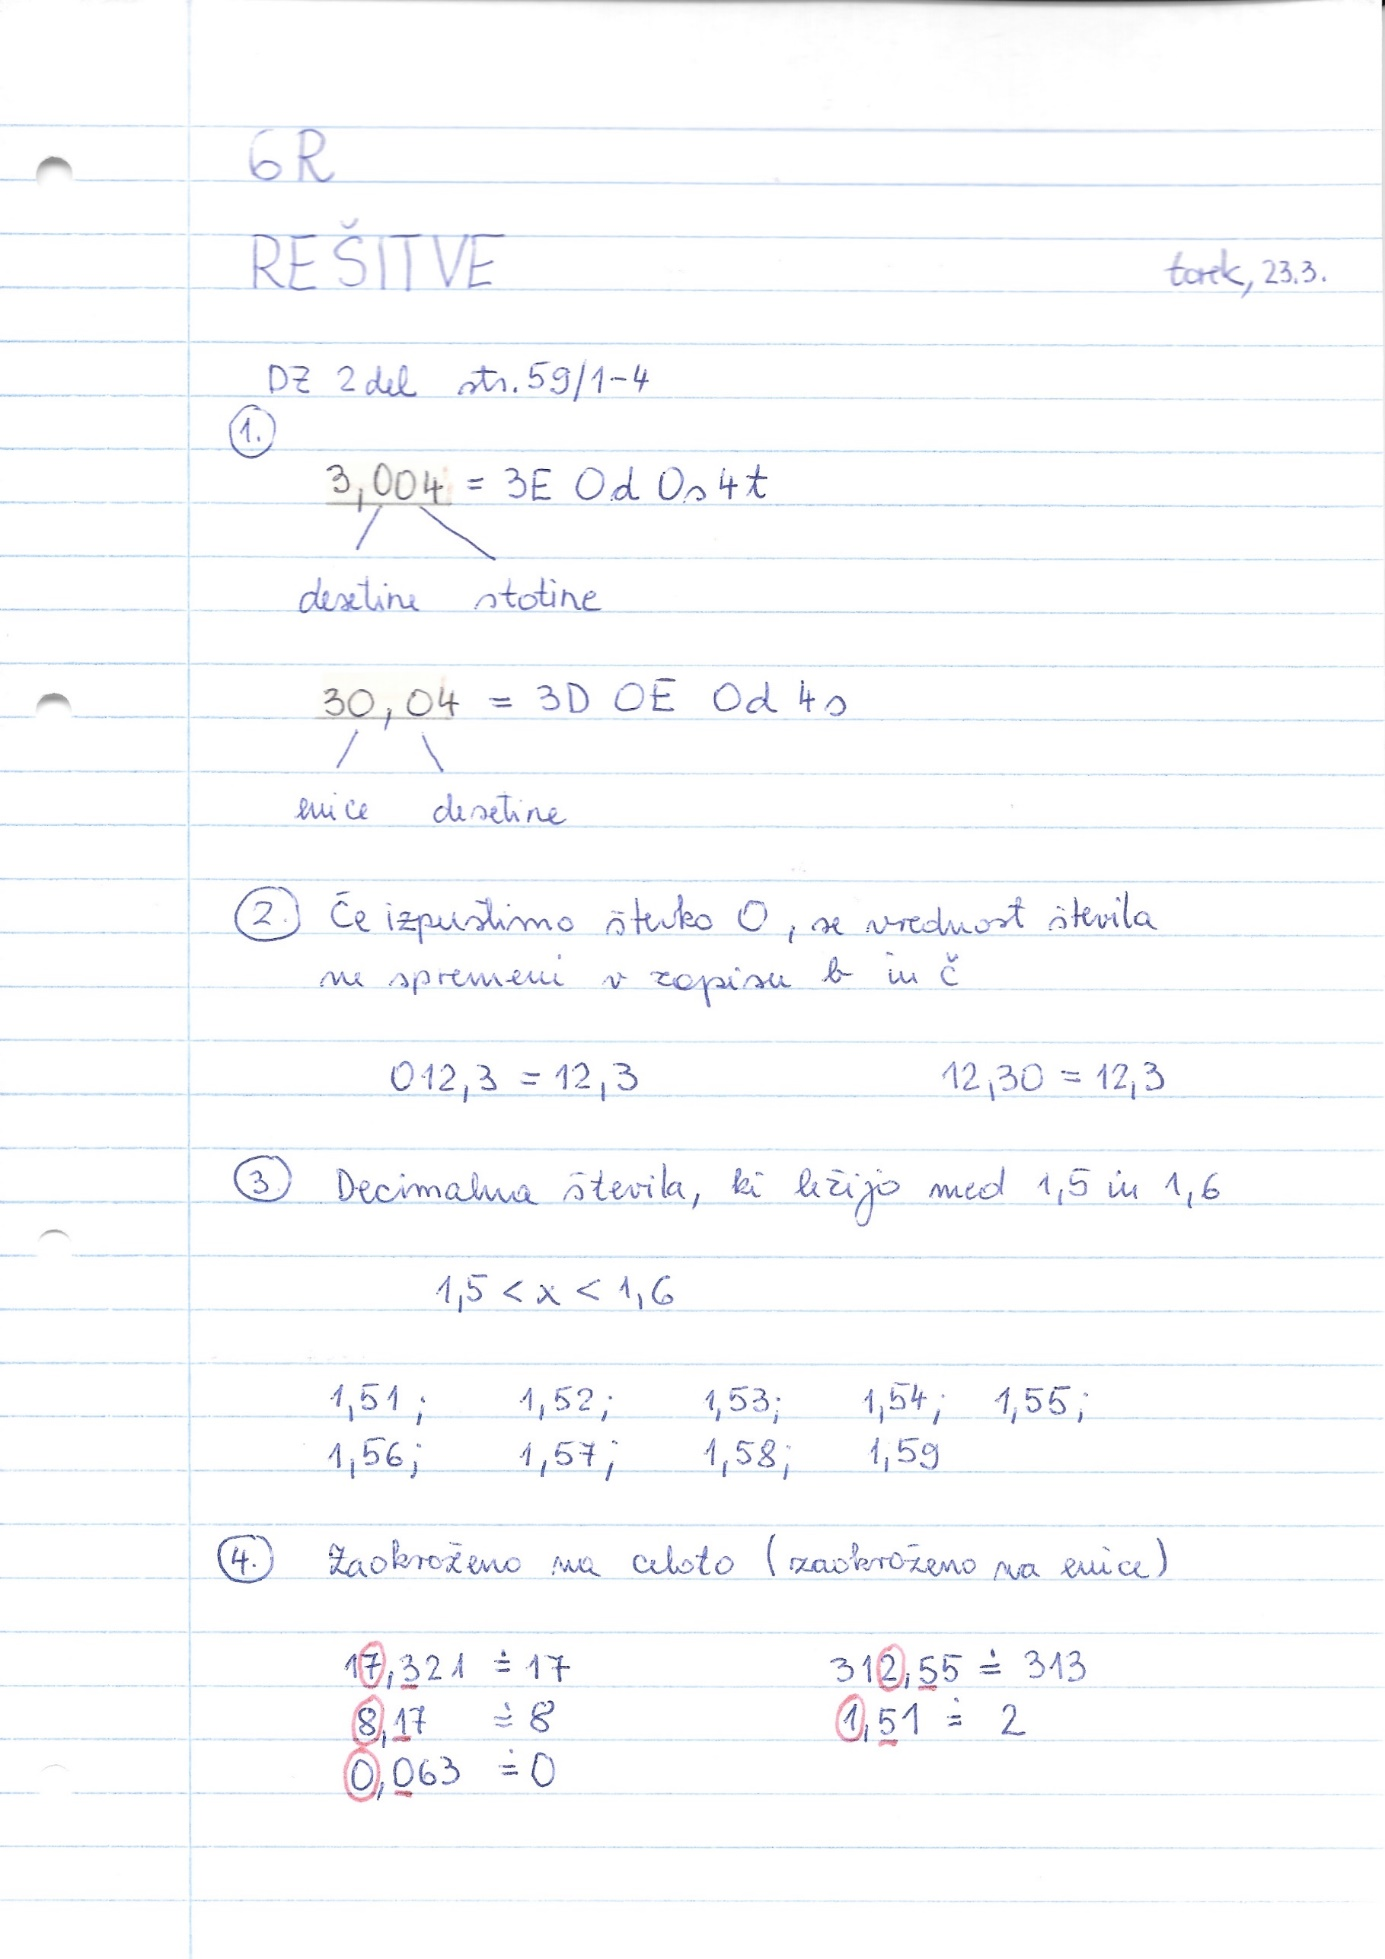 6R
REŠITVE
torek, 23.3.
DZ 2 del str. 59/1-4
1.
3,004 = 3E 0d 0s 4t
desetine stotine
30,04 = 3D 0E 0d 4s
enice desetine
2. Če izpustimo števko 0, se vrednost števila
ne spremeni v zapisu b in č
012,3 = 12,3 12,30 = 12,3
3 Decimalna števila, ki ležijo med 1,5 in 1,6
1,5 < x < 1,6
1,51; 1,52; 1,53; 1,54; 1,55;
1,56; 1,57; 1,58; 1,59
4. Zaokroženo na celoto (zaokroženo na enice)
17,321 ≐ 17 312,55 ≐ 313
8,17 ≐ 8 1,51 ≐ 2
0,063 ≐ 0